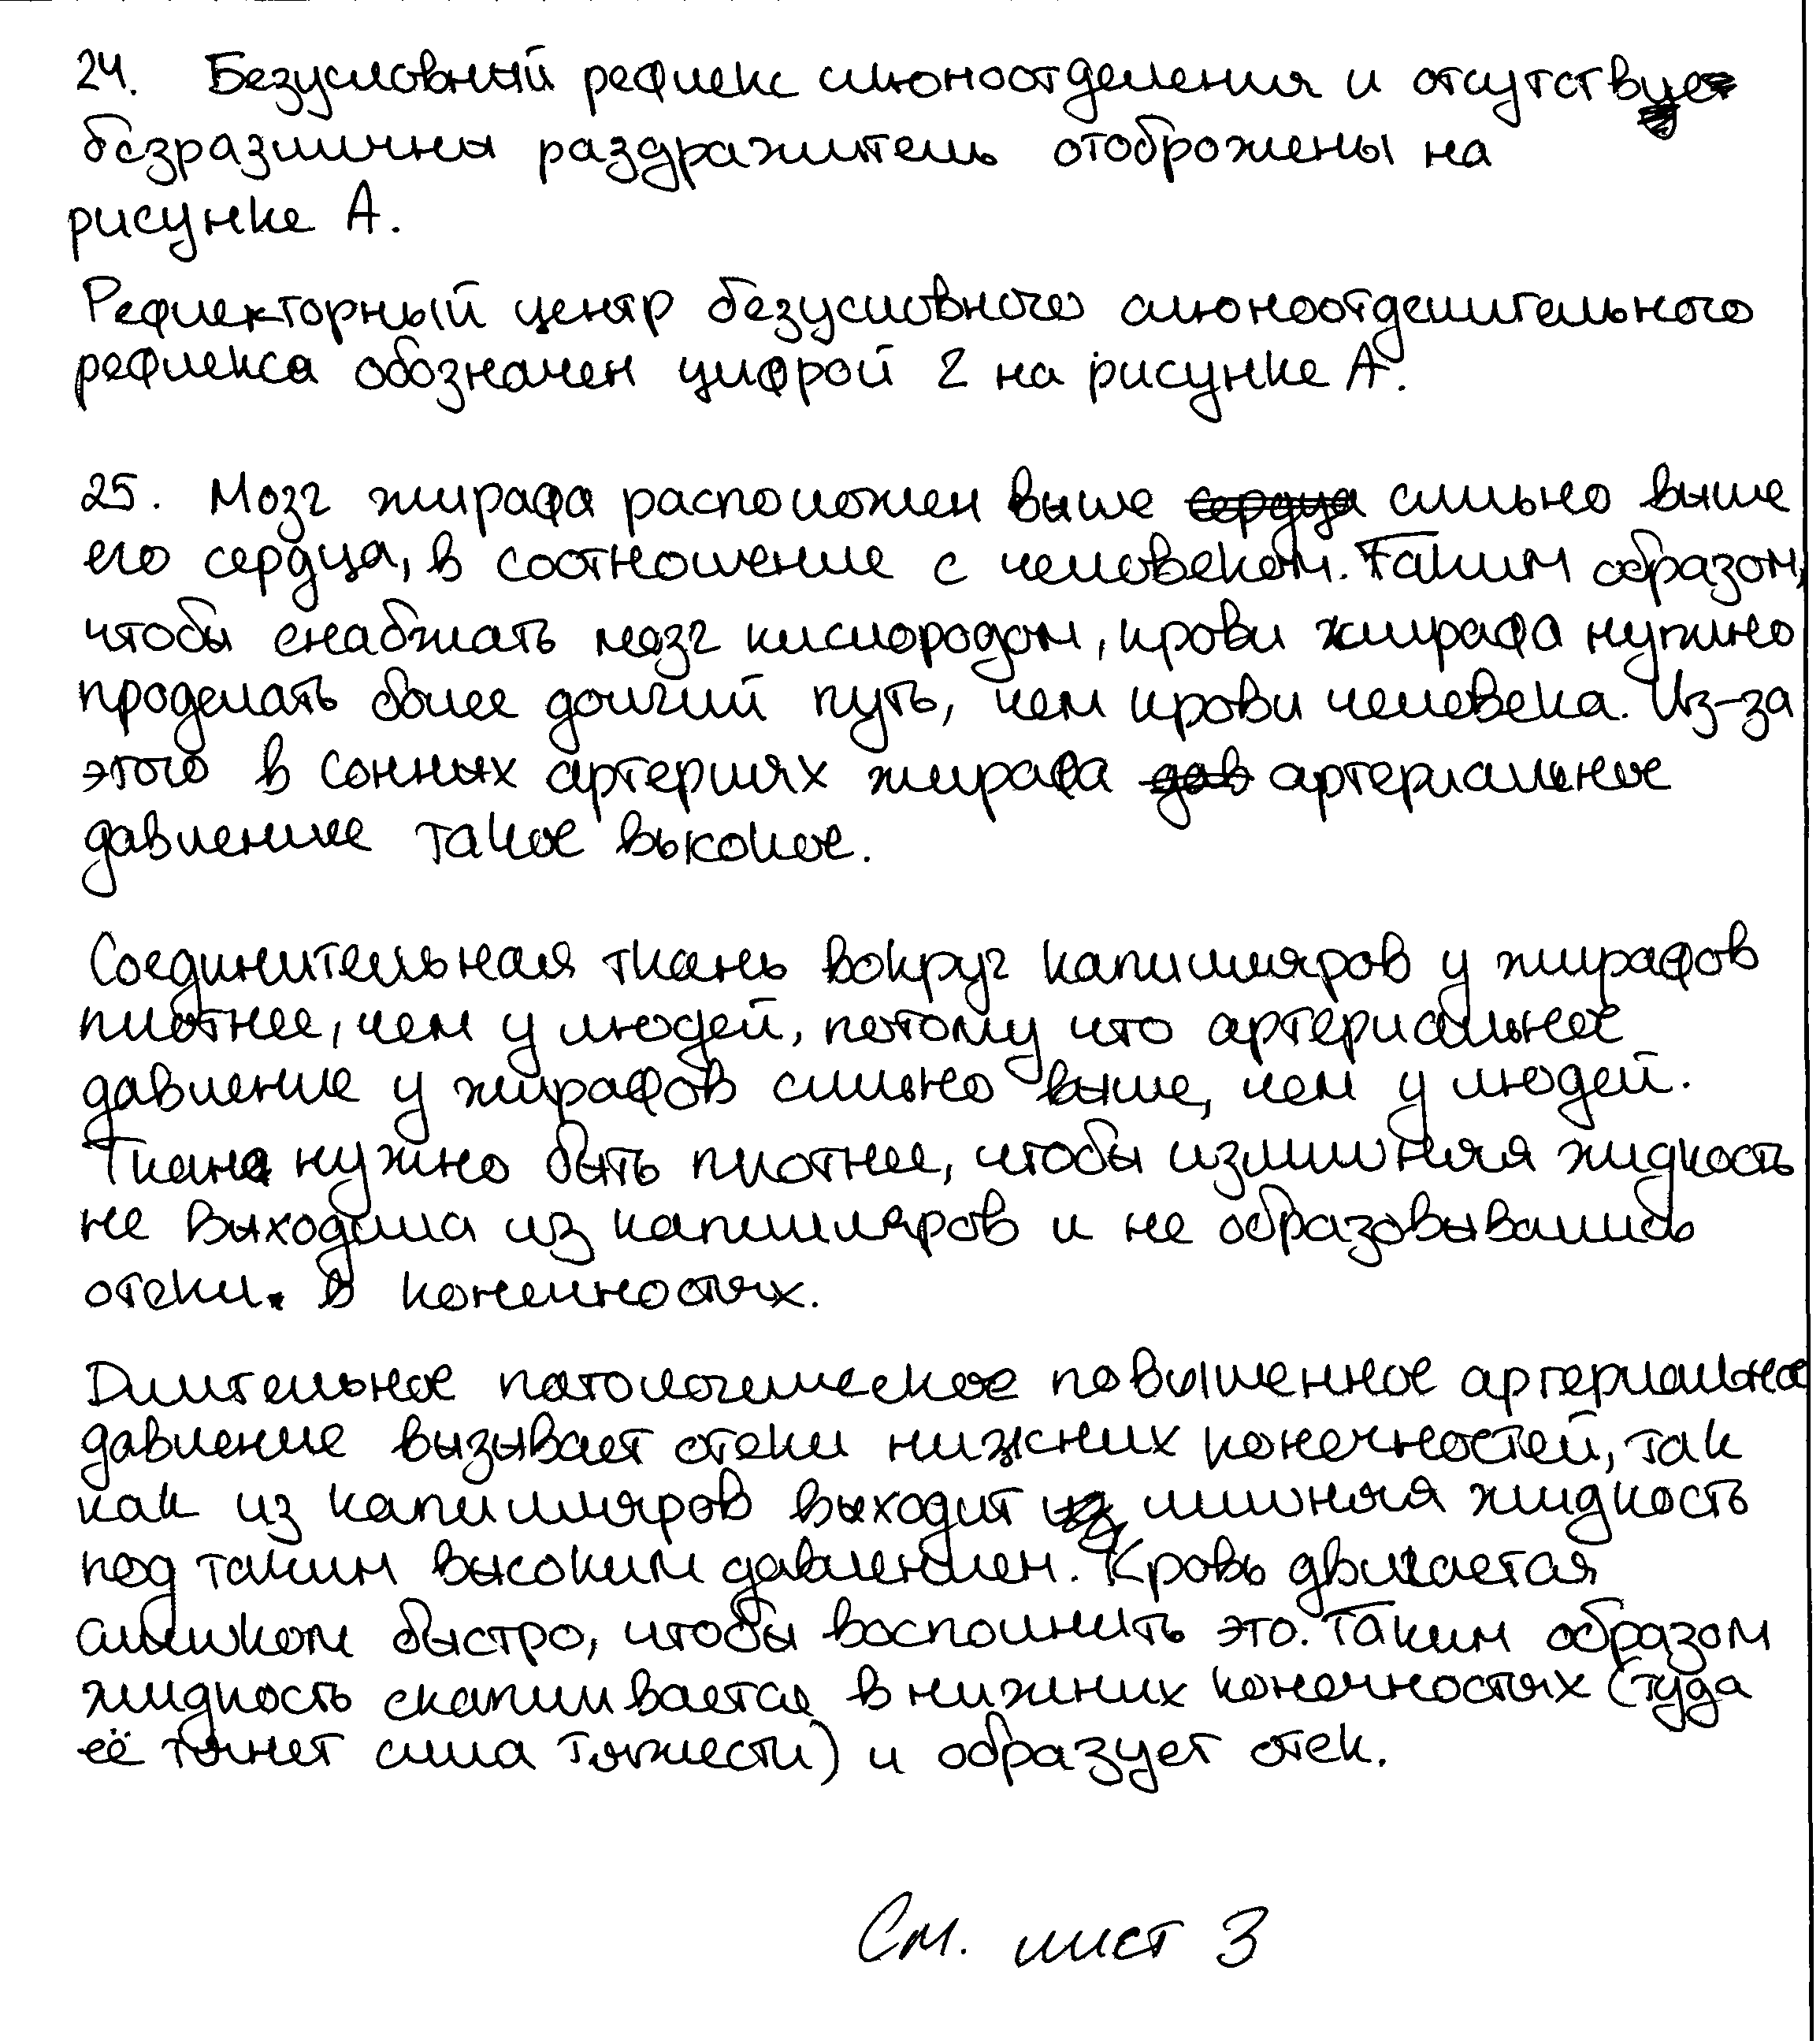 24. Безусловный рефлекс слюноотделения и отсутствует
безразличны раздражитель отоброжены на
рисунке А.
Рефлекторный центр безусловного слюноотделительного
рефлекса обозначен цифрой 2 на рисунке А.
25. Мозг жирафа расположен выше сердца сильно выше
его сердца, в соотношение с человеком. Таким образом,
чтобы снабжать мозг кислородом, крови жирафа нужно
проделать более долгий путь, чем крови человека. Из-за
этого в сонных артериях жирафа дав артериальное
давление такое высокое.
Соединительная ткань вокруг капилляров у жирафов
плотнее, чем у людей, потому что артериальное
давление у жирафов сильно выше, чем у людей.
Ткане нужно быть плотнее, чтобы излишняя жидкость
не выходила из капилляров и не образовывались
отеки. в конечностях.
Длительное патологическое повышенное артериальное
давление вызывает отеки нижних конечностей, так
как из капилляров выходит из лишняя жидкость
под таким высоким давлением. Кровь двигается
слишком быстро, чтобы восполнить это. Таким образом
жидкость скапливается в нижних конечностях (туда
её тянет сила тяжести) и образует отек.
См. лист 3